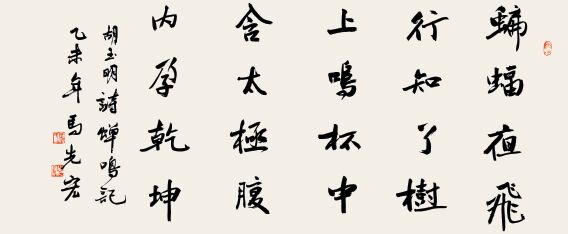 蝙蝠夜飛
行知了樹
上鳴杯中
含太極腹
内孕乾坤
胡玉明詩蟬鳴記
乙未年馬先宏